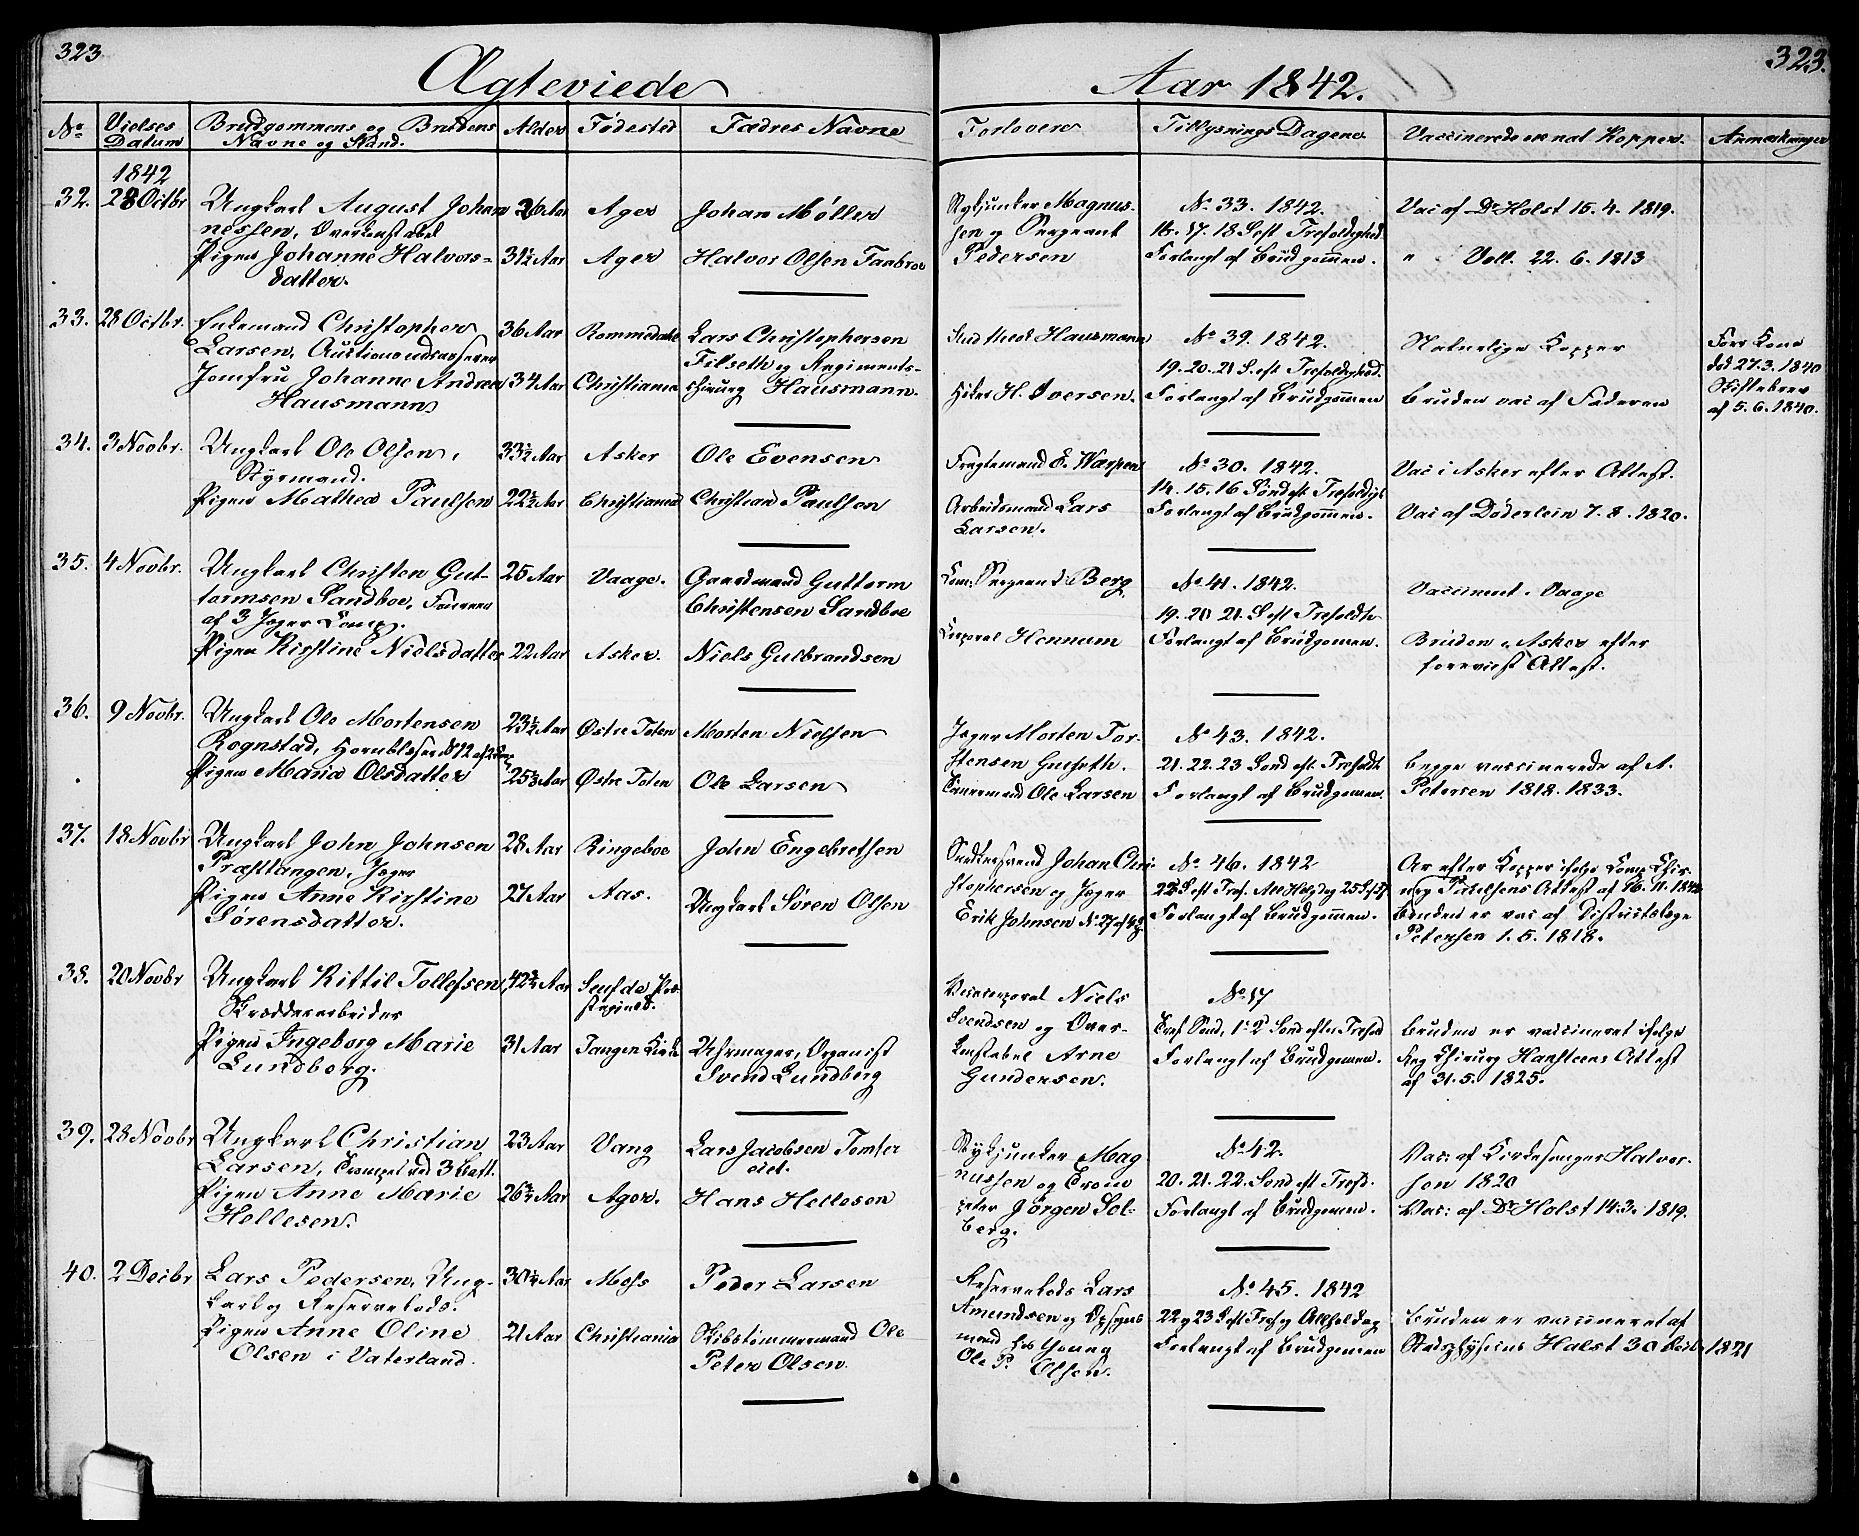 323
Ægteviede
No
Vielses Datum
Brudgommens og Brudens Navne og Stand.
Alder
Fødested
Fædres Navne
1842
32. 28 Octbr Ungkarl August Johan 26 Aar Ager Johan Møller
nessen, Overkonstabel
Pigen Johanne Halvors- 31½ Aar Ager Halvor Olsen
datter.
33. 28 Octbr. Enkemand Christopher 36 Aar Rommedahl Lars Christophersen
Larsen, Auctionsudraaber Filseth og Regiments-
Jomfru Johanne Andrea 34 Aar Christiania chirurg Hausmann.
Hausmann
34. 3 Novbr. Ungkarl Ole Olsen, 33½ Aar Asker Ole Evensen
Styrmand.
Pigen Mathea Paulsen 22½ Aar Christiania Christian Paulsen
35. 4 Novbr. Ungkarl Christen Gut- 25 Aar Vaage. Gaardmand Guttorm
tormsen Sandboe, Foureer Christensen Sandboe
af 3 Jæger Comp.
Pigen Kirstine Nielsdatter 22 Aar Asker. Niels Gulbrandsen
36. 9 Novbr. Ungkarl Ole Mortensen 23½ Aar Østre Toten Morten Nielsen
Rognstad, Hornblæser
Pigen Maria Olsdatter 25¾ Aar Østre Toten Ole Larsen
37. 18 Novbr Ungkarl John Johnsen 28 Aar Ringeboe John Engebretsen
Præsttangen, Jæger
Pigen Anne Kirstine 27 Aar Aas. Ungkarl Søren Olsen
Sørensdatter.
38. 20 Novbr Ungkarl Kittil Tollefsen, 42¾ Aar
Skrædderarbeider
Pigen Ingeborg Marie 31 Aar Tangen Kirke Uhrmager, Organist
Lundborg. Svend Lundberg
39. 28 Novbr Ungkarl Christian 23 Aar Vang Lars Jacobsen
Larsen, Trompet ved 3 Batt.
Pigen Anne Marie 26¾ Aar Ager. Hans Hellesen
Hellesen.
40. 2 Decbr Lars Pedersen, Ung- 30¼ Aar Moss Peder Larsen
karl og Reservelods.
Pigen Anne Oline 21 Aar Christiania Skibstømmermand Ole
Olsen i Vaterland. Peter Olsen.
323.
Aar 1842.
Forlovere
Tillysnings Dagene
Vaccinerede ell. nat. Kopper.
Anmærkninger
Stykjunker Magnus- No 33. 1842. Vac af Dr Holst 15. 4. 1819.
sen og Sergeant 16. 17. 18 S. eft Trefoldighed.
Pedersen Forlangt af Brudgommen. " Voll. 22. 6. 1813
Stud. Hausmann No 39. 1842. Naturlige Kopper Forr. Kone
19. 20. 21 S. eft Trefoldighed. død 27. 3. 1840
H. Iversen. Forlangt af Brudgommen Bruden vac af Faderen Skiftebrev
af 5. 6. 1840.
Fragtemand E. No 30. 1842. Vac i Asker efter Attest.
14. 15. 16 Sønd eft Trefoldigh
Arbeidsmand Lars Forlangt af Brudgommen. Vac af Døderlein 7. 8. 1820.
Larsen.
Sergeant Berg No 41. 1842. Vaccineret i Vaage
19. 20. 21. S eft Trefoldh
Corporal Hennum Forlangt af Brudgommen. Bruden i Asker efter
foreviist Attest.
Jæger Morten Tor- No 43. 1842.
stensen 21. 22. 23 Sønd eft Trefoldh Begge vaccinerede af A.
Ole Larsen Forlangt af Brudgommen. Petersen 1818. 1833.
Snedkersvend Johan Chri- No 46. 1842 Ar efter Kopper ifølge Comp. Chir-
stophersen og Jæger Attest af 16. 11. 1842
Erik Johnsen Forlangt af Brudgommen. Bruden er vac af Districtslæge
Petersen 1. 5. 1818.
Vicecorporal Niels No 17
Svendsen og Over- Tref. Sønd, 1. 2 Sønd efter Trefold Bruden er vaccineret ifølge
konstabel Arne Forlangt af Brudgommen. Reg Chirurg Hansteens Attest
Gundersen. af 31. 5. 1825.
Stykjunker Mag No 42. Vac: af Kirkesanger Halvor-
nussen og Trom 20. 21. 22. Sønd eft Trefd. sen 1820
peter Jørgen Sol- Forlangt af Brudgommen. Vac: af Dr Holst 14. 3. 1819.
berg.
Reservelods Lars No 45. 1842
Amundsen og Opsyns 22 og 23 S eft Tref og Allehelgdag Bruden er vaccineret af
mand hos Young Forlangt af Brudgommen Stadsphysicus Holst 30 Decbr 1821
Ole P. Olsen.